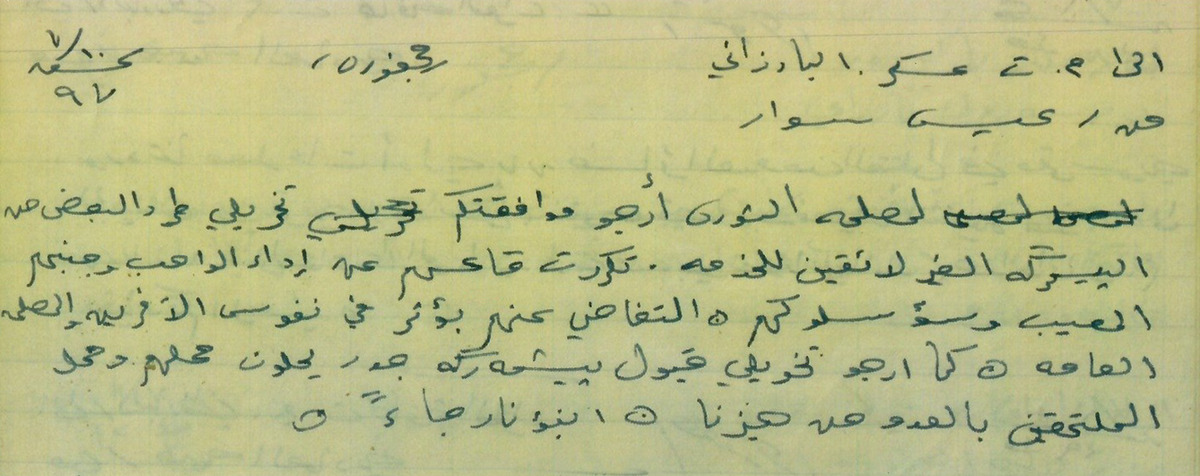 الى / م. ت عسكر. البارزاني
من / عيسى سوار
لمصلحه الثوره أرجو موافقتكم تخويلي طرد البعض من
البيشمركه الغير لائقين للخدمه . تكررت تقاعسهم عن إداء الواجب وجبنهم
المعيب وسؤ سلوكهم ٥ التغاضي عنهم يؤثر في نفوس الآخرين والمصلحه
العامه ٥ كما ارجو تخويلي قبول بيشمه ركه جدد يحلون محلهم ومحل
الملتحقين بالعدو من هيزنا ٥ انبؤنا رجاءً ٥